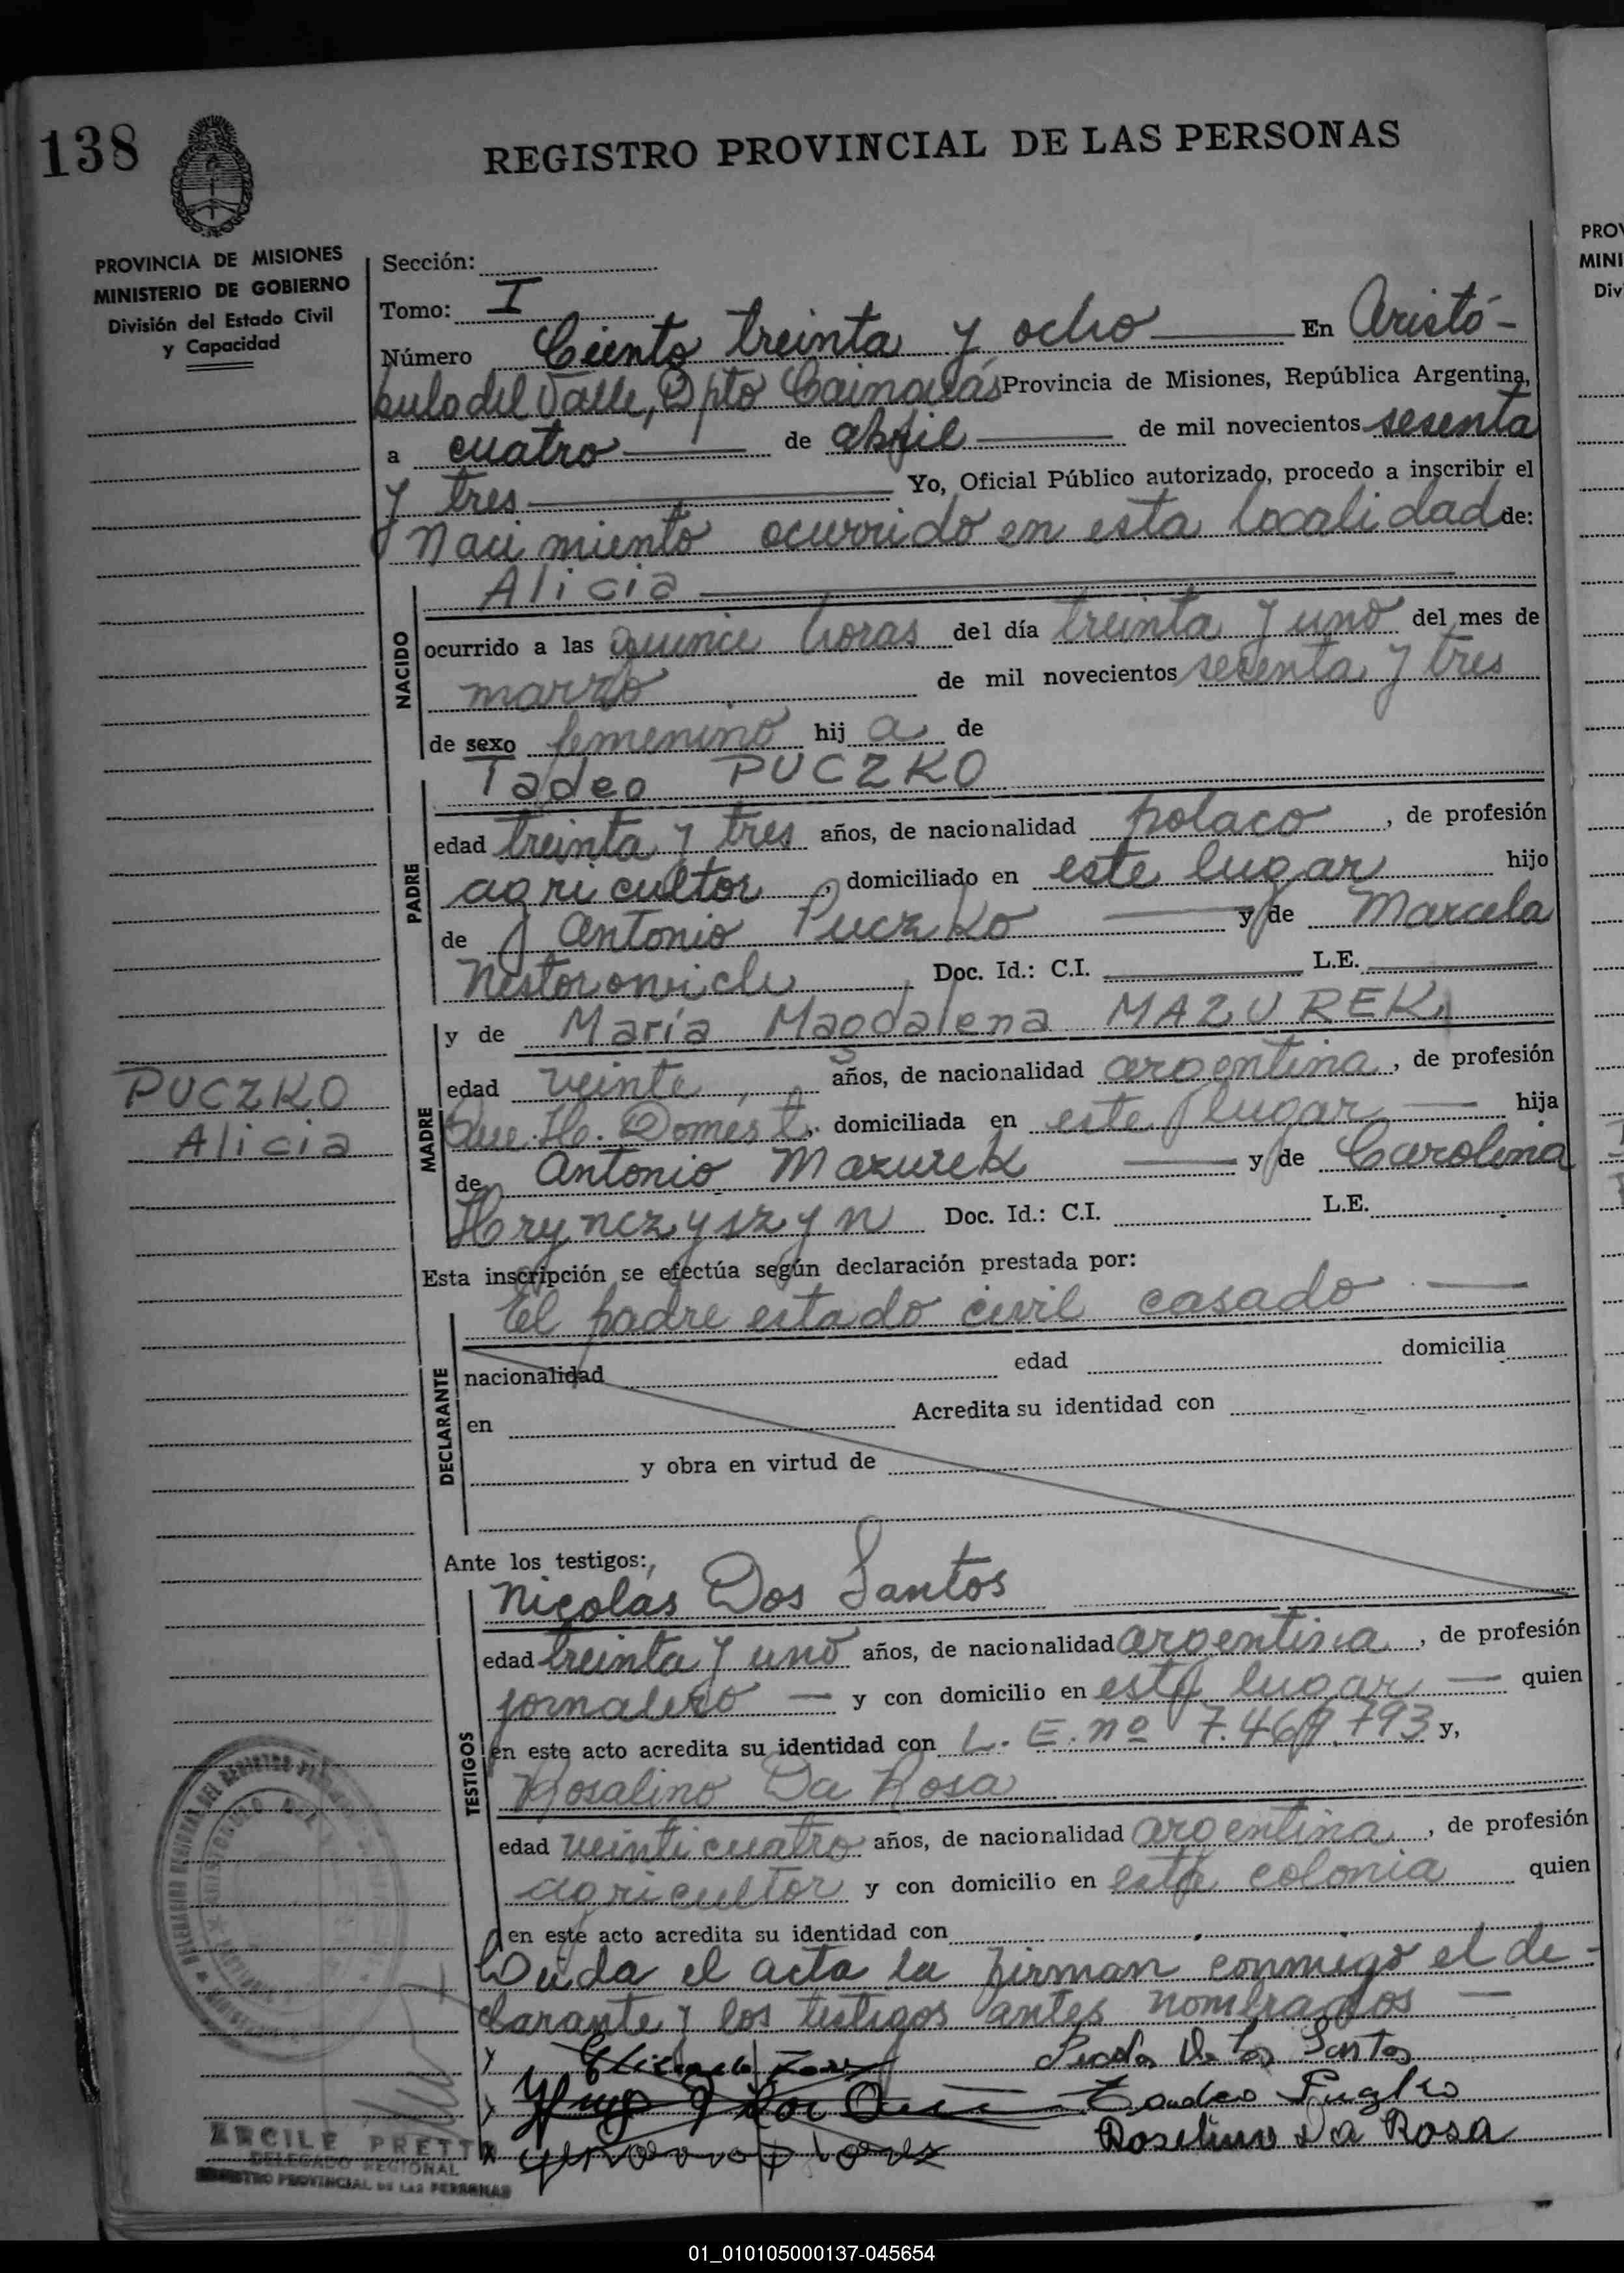 138
REGISTRO PROVINCIAL DE LAS PERSONAS
PROVINCIA DE MISIONES
MINISTERIO DE GOBIERNO
División del Estado Civil
y Capacidad
Sección:
Tomo: I
Número Ciento treinta y ocho En Aristó-
bulo del Valle, Dpto Cainguás Provincia de Misiones, República Argentina,
a cuatro de abril de mil novecientos sesenta
y tres Yo, Oficial Público autorizado, procedo a inscribir el
Nacimiento ocurrido en esta localidad de:
Alicia
NACIDO
ocurrido a las quince horas del día treinta y uno del mes de
marzo de mil novecientos sesenta y tres
de sexo femenino hij a de
Tadeo PUCZKO
PADRE
edad treinta y tres años, de nacionalidad polaco, de profesión
agricultor, domiciliado en este lugar hijo
de Antonio Puczko y de Marcela
Nestorowich Doc. Id.: C.I. L.E.
y de María Magdalena MAZUREK
MADRE
edad veinte años, de nacionalidad argentina, de profesión
Que. H. Domest, domiciliada en este lugar hija
de Antonio Mazurek y de Carolina
Hrynczyszyn Doc. Id.: C.I. L.E.
PUCZKO
Alicia
Esta inscripción se efectúa según declaración prestada por:
El padre estado civil casado
DECLARANTE
nacionalidad edad domicilia
en Acredita su identidad con
y obra en virtud de
Ante los testigos:
Nicolás Dos Santos
TESTIGOS
edad treinta y uno años, de nacionalidad argentina, de profesión
jornalero y con domicilio en este lugar quien
en este acto acredita su identidad con L.E. nº 7.469.793 y,
Rosalino Da Rosa
edad veinticuatro años, de nacionalidad argentina, de profesión
agricultor y con domicilio en esta colonia quien
en este acto acredita su identidad con
Leída el acta la firman conmigo el de-
clarante y los testigos antes nombrados
Santos
Tadeo
Da Rosa
ERCILE PRETT
DELEGADO REGIONAL
REGISTRO PROVINCIAL DE LAS PERSONAS
PROV
MINI
Div
01_010105000137-045654